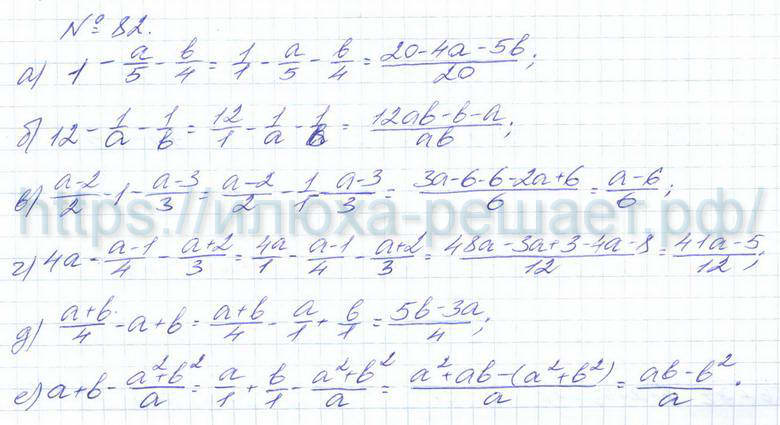 № 82.
а) 1 - a/5 - b/4 = 1/1 - a/5 - b/4 = (20-4a-5b)/20;
б) 12 - 1/a - 1/b = 12/1 - 1/a - 1/b = (12ab-b-a)/ab;
в) (a-2)/2 - 1 - (a-3)/3 = (a-2)/2 - 1/1 - (a-3)/3 = (3a-6-6-2a+6)/6 = (a-6)/6;
https://илюха-решает.рф/
г) 4a - (a-1)/4 - (a+2)/3 = 4a/1 - (a-1)/4 - (a+2)/3 = (48a-3a+3-4a-8)/12 = (41a-5)/12;
д) (a+b)/4 - a + b = (a+b)/4 - a/1 + b/1 = (5b-3a)/4;
е) a + b - (a²+b²)/a = a/1 + b/1 - (a²+b²)/a = (a²+ab-(a²+b²))/a = (ab-b²)/a.